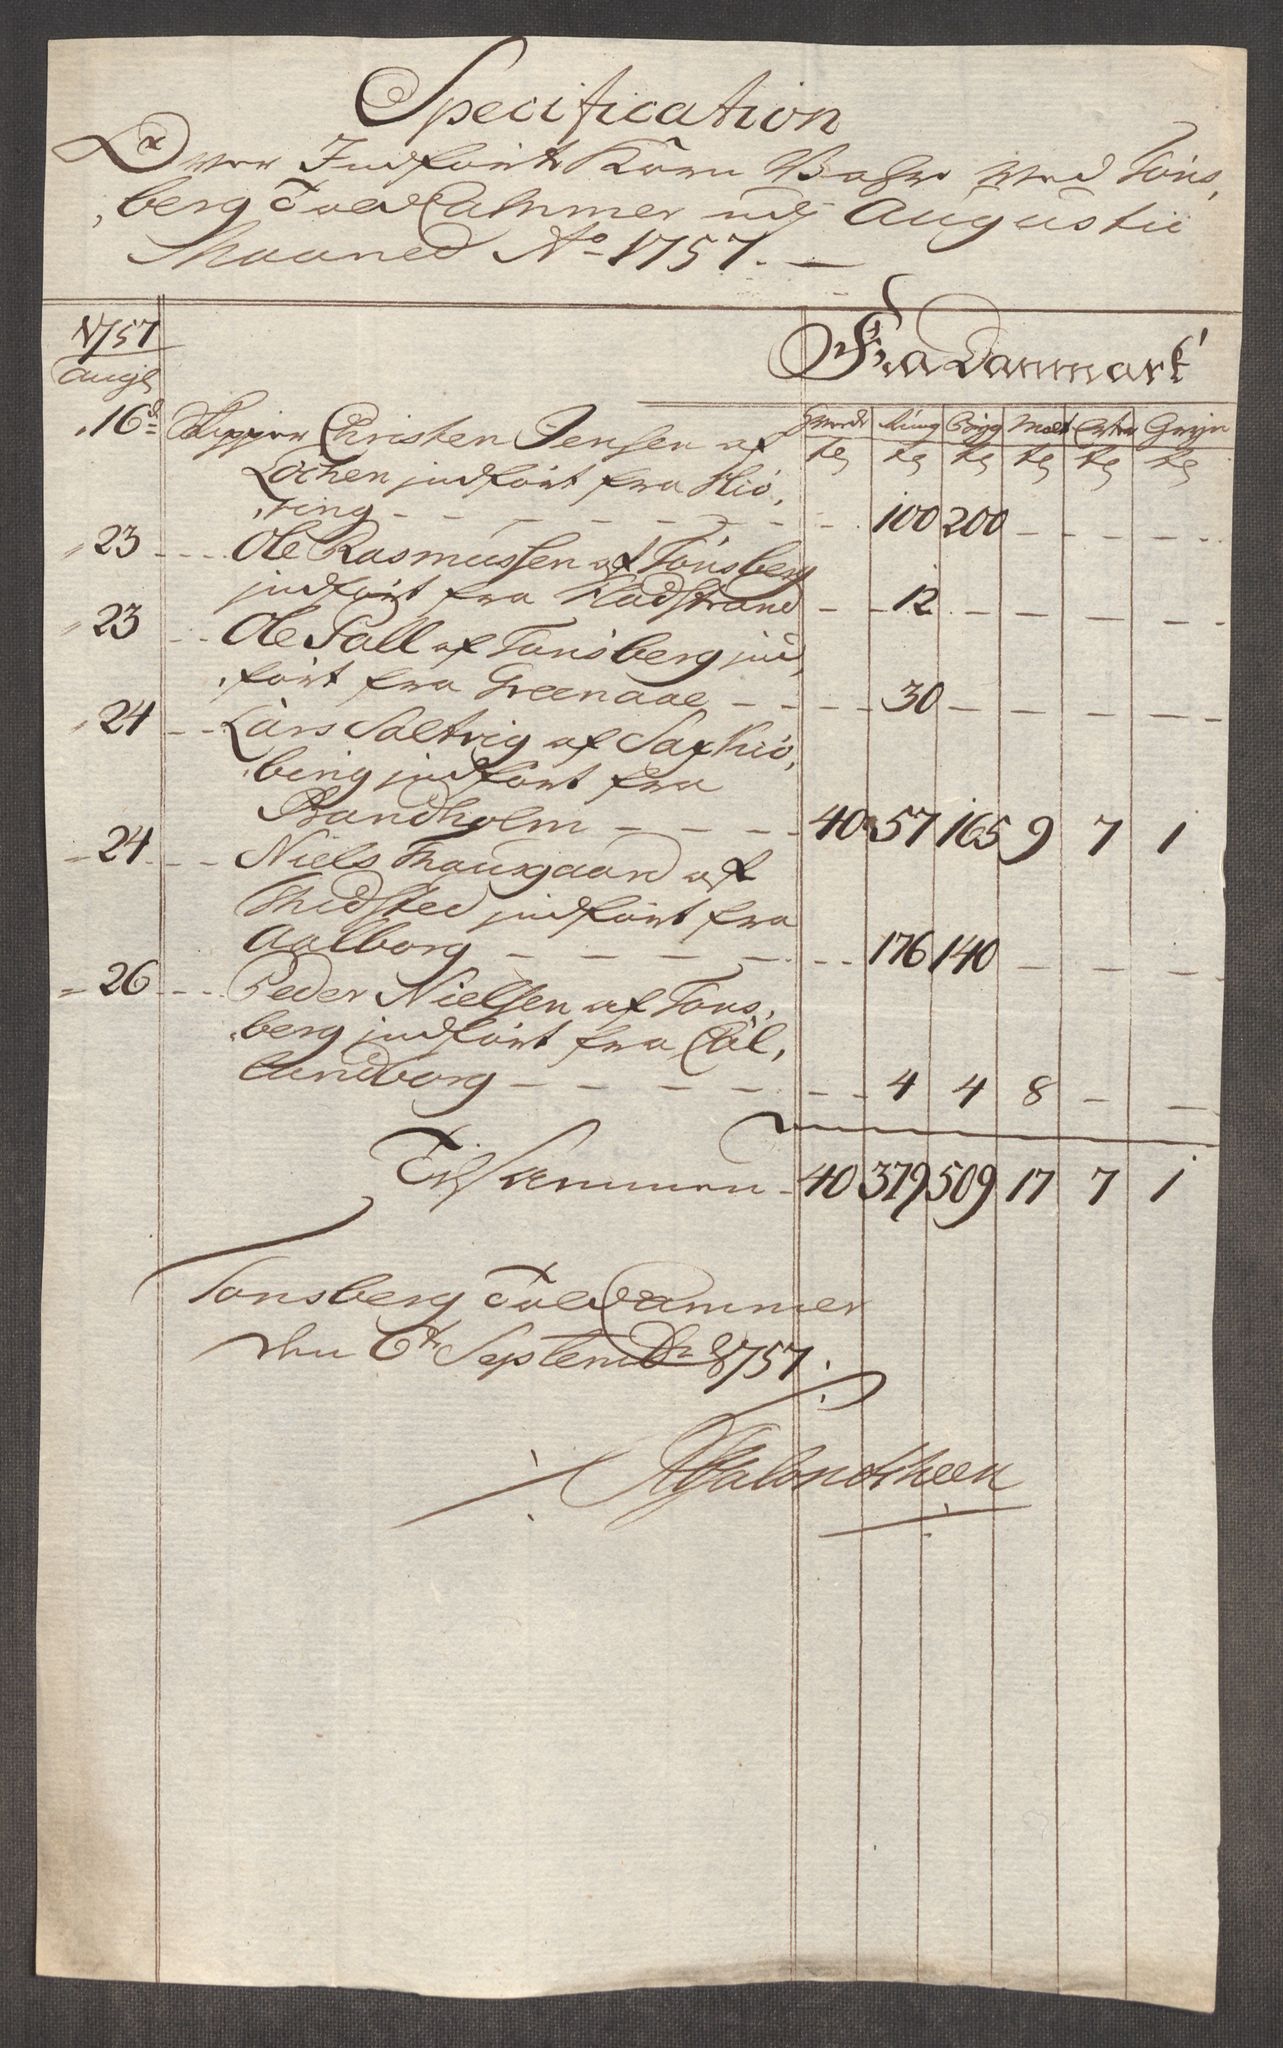 Specification
Over Indført Korn Vahre ved Töns,
,berg Told Cammer udj Augustii
Maaned Ao 1757. —
1757
Augl
Fra Danmark
Rug Bÿg Malt Grÿn
tr tr tr tr tr tr
16d Skipper Christen Jensen af
Löchen indfört fra Hiö,
,ring - - - - - - - 100 200 - - - -
23 - - - Ole Rasmussen af Tönsberg
indfört fra Fladstrand - - 12 - - - -
23 - - Ole Pall af Tönsberg ind,
,fört fra Greenaae - - - - 30 - - - - -
24 - - Lars Saltvig af Saxkiö,
,bing indfört fra
Bandholm - - - - 40 57 165 9 7 1
24 - - - Niels af
Thisted indfört fra
Aalborg - - - - - - - 176 140 - - - -
26 - - - Peder Nielsen af Töns,
,berg indfört fra Cal,
lundborg - - - - - - - 4 4 8 - -
Tilsammen - 40 379 509 17 7 1
Tönsberg Told Cammer
den 6te Septembr 1757.